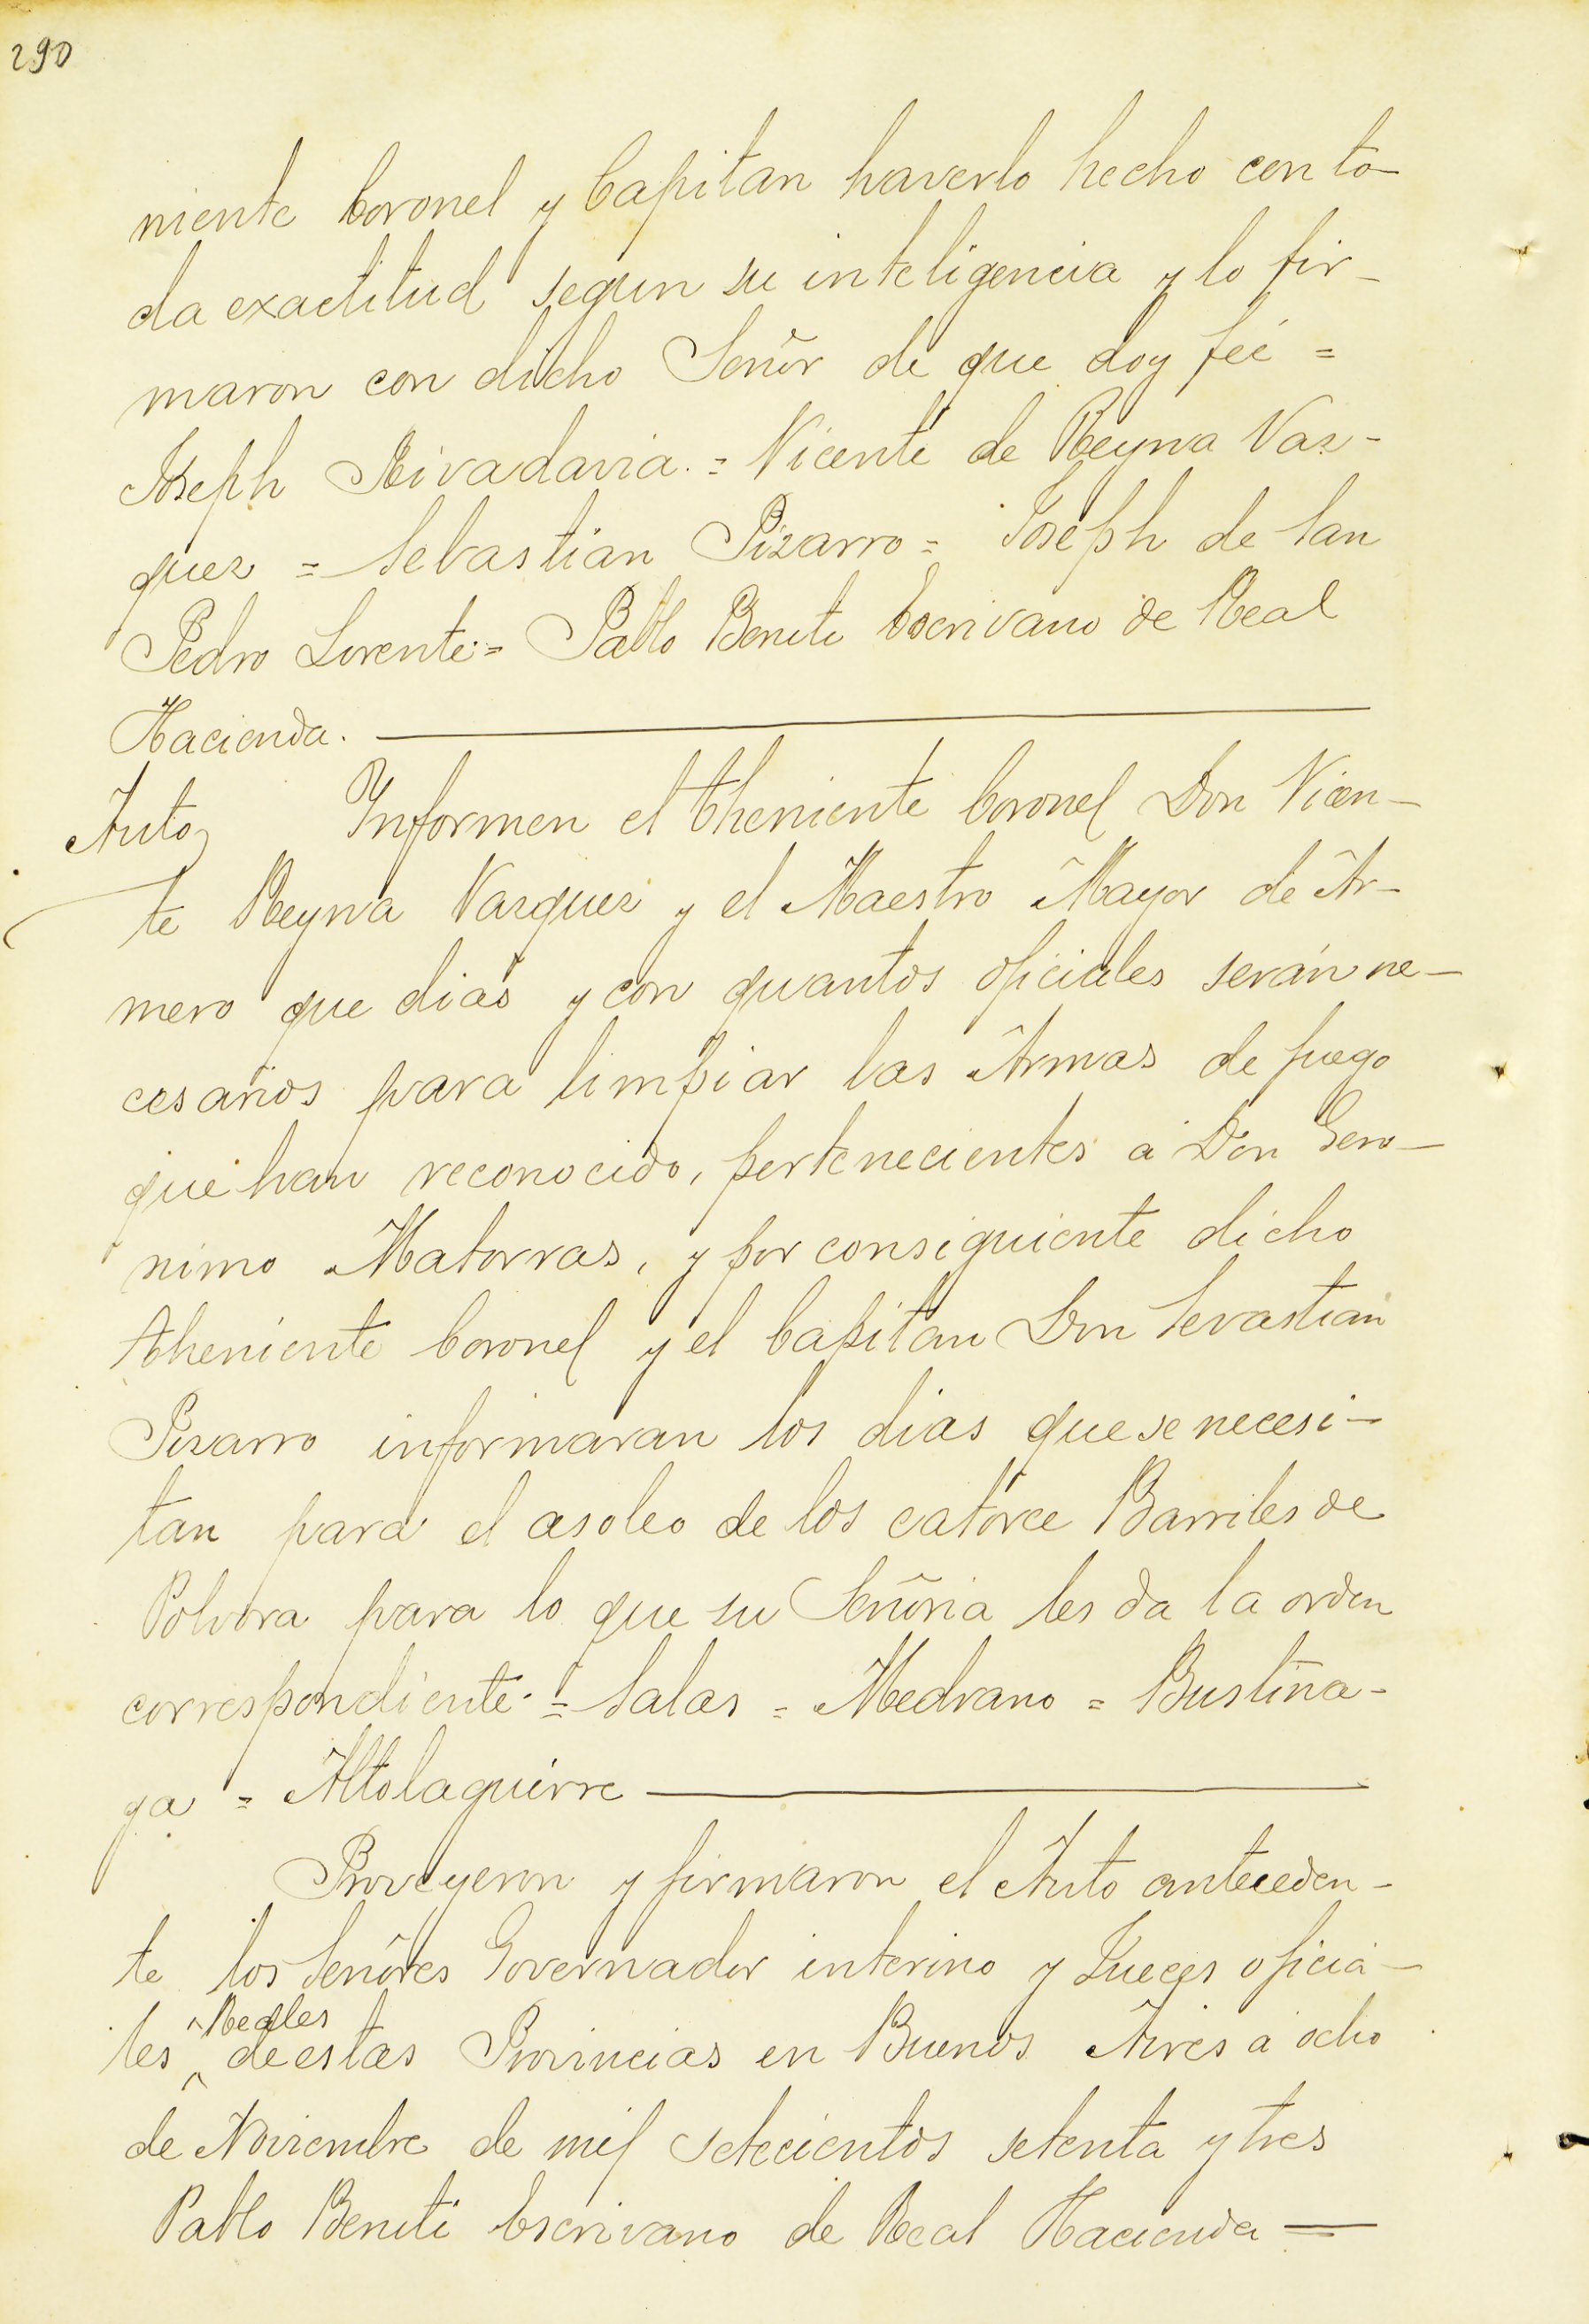 290
niente Coronel y Capitan haverlo hecho con to-
da exactitud segun su inteligencia y lo fir-
maron con dicho Señor de que doy feé =
Joseph Rivadavia. = Vicente de Reyna Vaz-
quez = Sebastian Pizarro = Joseph de San
Pedro Lorente = Pablo Beruti Escrivano de Real
Hacienda.
Auto Ynformen el Theniente Coronel Don Vicen-
te Reyna Vazquez y el Maestro Mayor de Ar-
mero que dias y con quantos oficiales serán ne-
cesarios para limpiar las Armas de fuego
que han reconocido, pertenecientes a Don Gero-
nimo Matorras, y por consiguiente dicho
Theniente Coronel y el Capitan Don Sevastian
Pizarro informaran los dias que se necesi-
tan para el asoleo de los catorce Barriles de
Polvora para lo que su Señoria les da la orden
correspondiente. = Salas = Medrano = Bustina-
ga = Altolaguirre
Proveyeron y firmaron el Auto anteceden-
te los Señores Governador interino y Jueces oficia-
les Reales de estas Provincias en Buenos Aires a ocho
de Noviembre de mil setecientos setenta y tres
Pablo Beruti Escrivano de Real Hacienda =